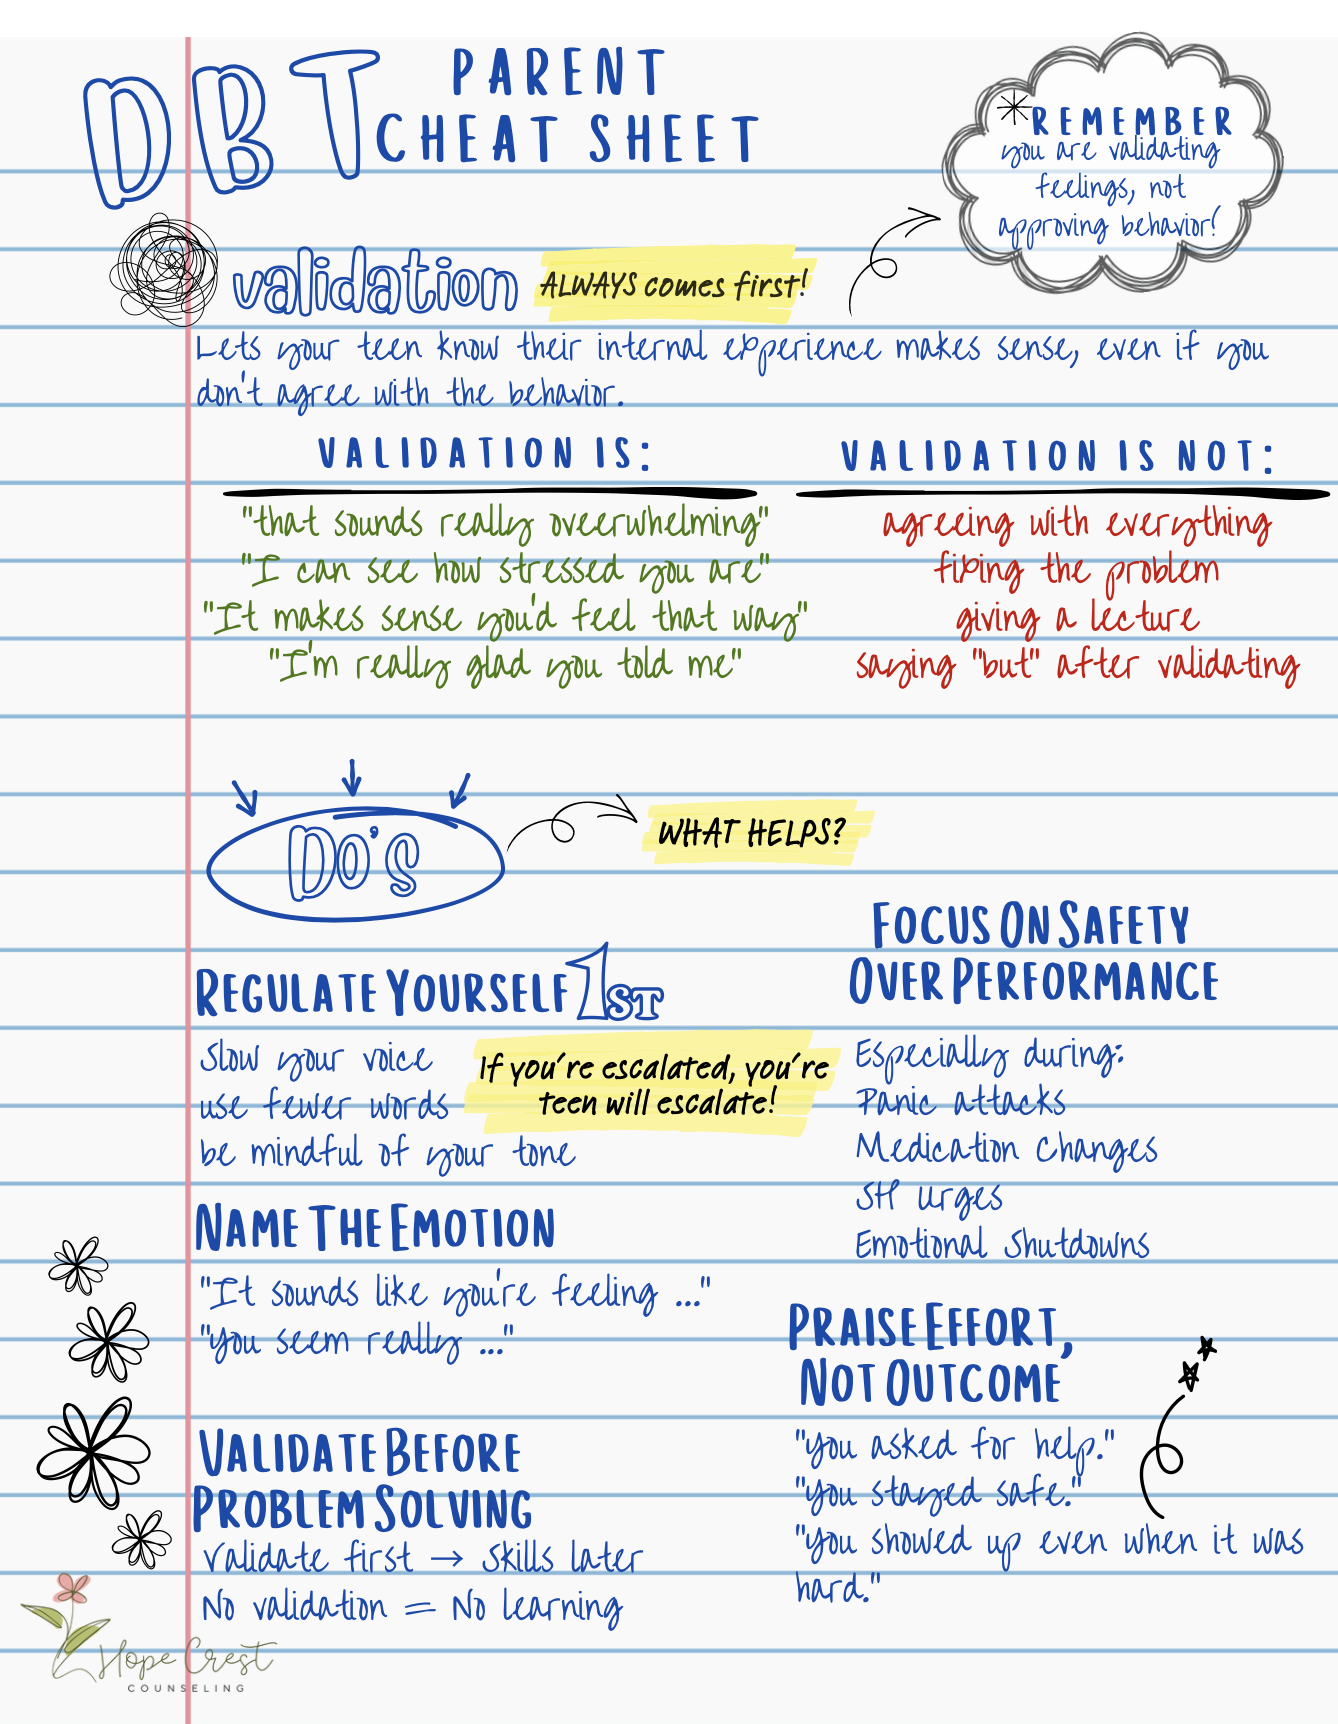 DBT PARENT
CHEAT SHEET
*REMEMBER
you are validating
feelings, not
approving behavior!
validation ALWAYS comes first!
Lets your teen know their internal experience makes sense, even if you
don't agree with the behavior.
VALIDATION IS:
"that sounds really overwhelming"
"I can see how stressed you are"
"It makes sense you'd feel that way"
"I'm really glad you told me"
VALIDATION IS NOT:
agreeing with everything
fixing the problem
giving a lecture
saying "but" after validating
DO'S
WHAT HELPS?
REGULATE YOURSELF 1ST
Slow your voice
use fewer words
be mindful of your tone
If you're escalated, you're
teen will escalate!
NAME THE EMOTION
"It sounds like you're feeling ..."
"You seem really ..."
VALIDATE BEFORE
PROBLEM SOLVING
Validate first → Skills later
No validation = No learning
FOCUS ON SAFETY
OVER PERFORMANCE
Especially during:
Panic attacks
Medication Changes
SH urges
Emotional Shutdowns
PRAISE EFFORT,
NOT OUTCOME
"You asked for help."
"You stayed safe."
"You showed up even when it was
hard."
Hope Crest
COUNSELING